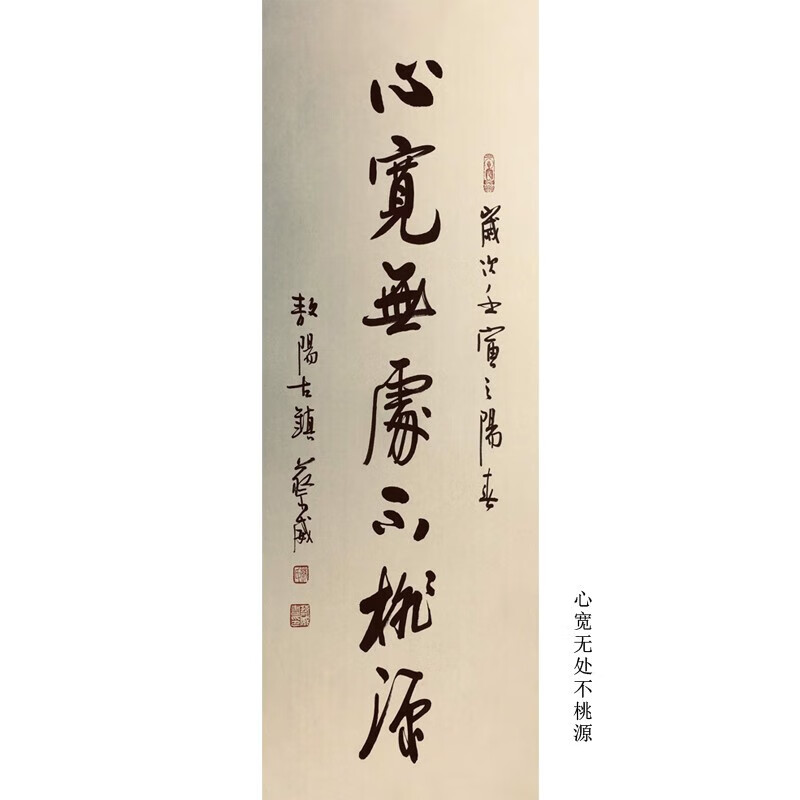 歲次壬寅之陽春
心寬無處不桃源
敖陽古鎮 蔡威
心宽无处不桃源